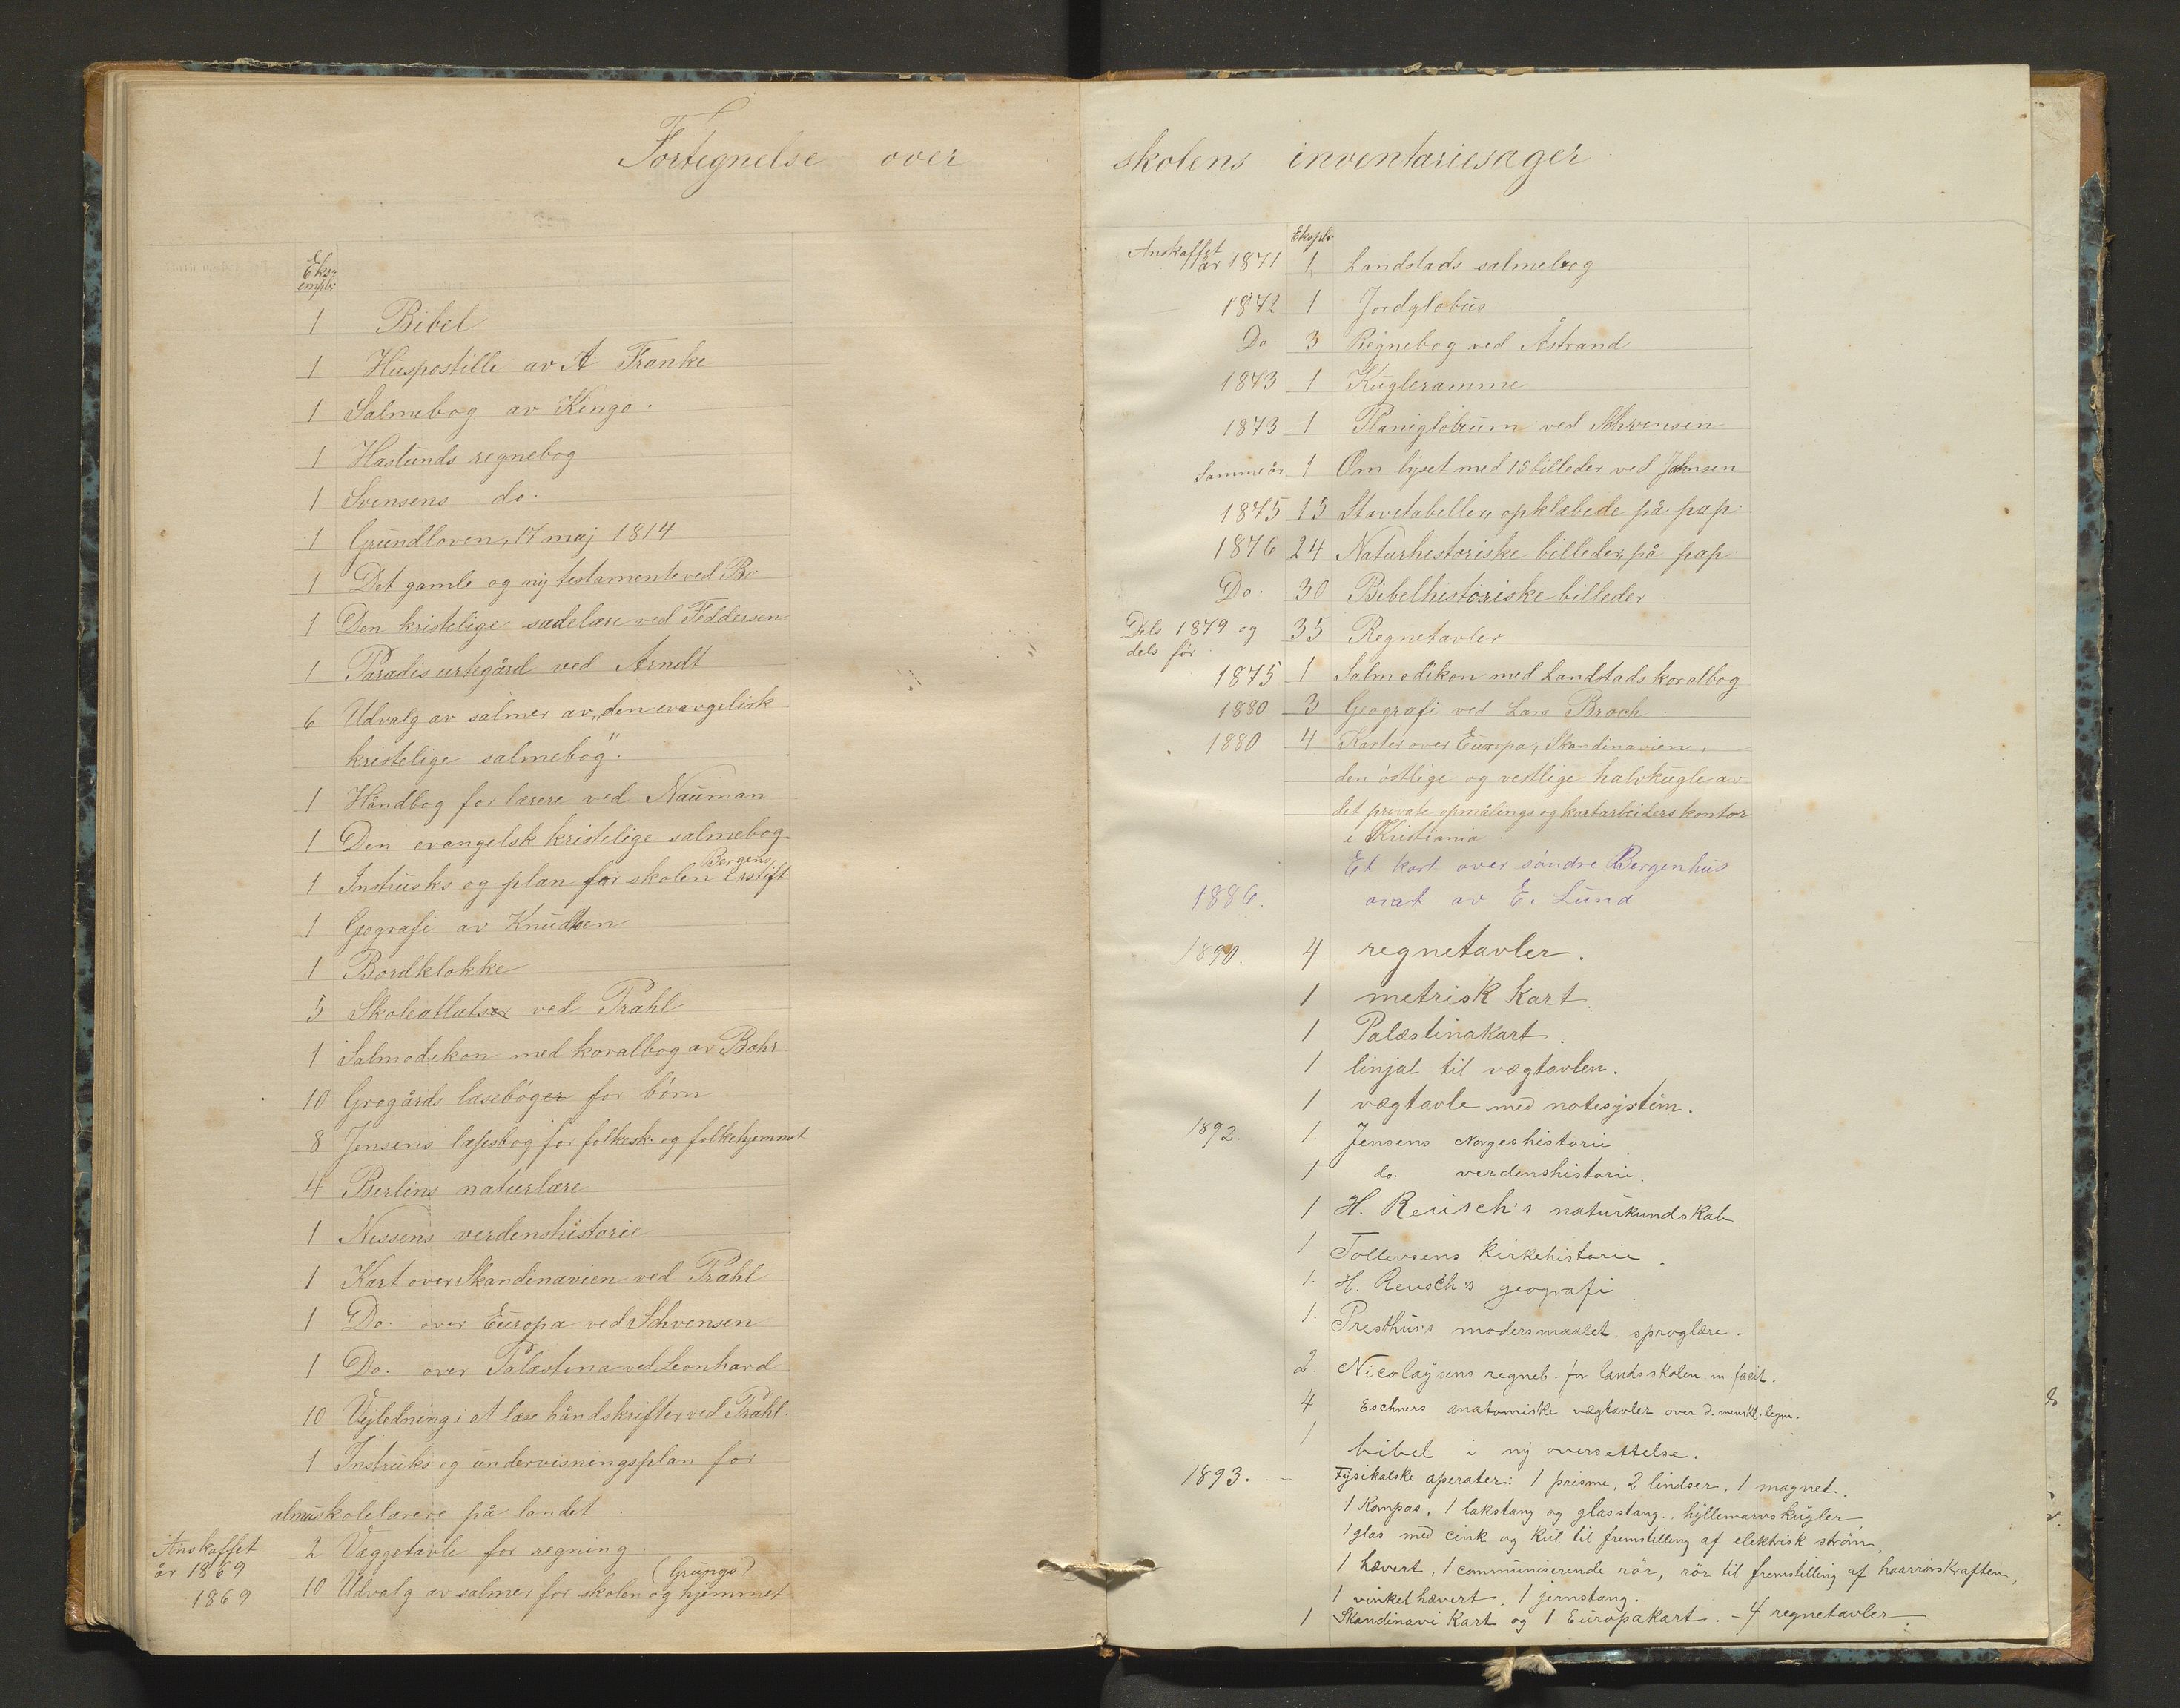 Fortegnelse over
Eks-
empl:
1 Bibel
1 Huspostille av A Franke
1 Salmebog av Kingo.
1 Haslunds regnebog
1 Svensens do.
1 Grundloven, 17 maj 1814
1 Det gamle og ny testamente ved Bo
1 Den kristelige sædelære ved Feddersen
1 Paradis urtegård ved Arndt
6 Udvalg av salmer av „den evangelisk
kristelige salmebog".
1 Håndbog for lærere ved Nauman
1 Den evangelsk kristelige salmebog
1 Instruks og plan for skolen i Bergens stift
1 Geografi av Knudsen
1 Bordklokke
5 Skoleatlatser ved Prahl
1 Salmodikon med koralbog av Bohr.
10 Grøgårds læsebøger for börn
8 Jensens læsesbog for folkesk. og folkehjemmet
4 Berlins naturlære
1 Nissens verdenshistorie
1 Kart over Skandinavien ved Prahl
1 Do. over Europa ved Schvensen
1 Do. over Palæstina ved Leonhard
10 Vejledning i at læse håndskrifter ved Prahl.
1 Instruks og undervisningsplan for
almuskolelærere på landet.
Anskaffet
år 1869 2 Væggetavle for regning.
1869 10 Udvalg av salmer for skolen og hjemmet (Grungs)
skolens inventariesager
Ekspl:
Anskaffet
år 1871 1 Landstads salmebog
1872 1 Jordglobus
Do 3 Regnebog ved Åstrand
1873 1 Kugleramme
1873 1 Planiglobium ved Schvensen
Samme år 1 Om lyset med 15 billeder ved Johnsen
1875 15 Stavetabeller, opklæbede på pap.
1876 24 Naturhistoriske billeder, på pap.
Do. 30 Bibelhistoriske billeder.
Dels 1879 og
dels för 35 Regnetavler
1875 1 Salmodikon med Landstads koralbog
1880 3 Geografi ved Lars Broch.
1880 4 Karter over Europa, Skandinavien,
den östlige og vestlige halvkugle av
det private opmålings og kartarbeiders kontor
i Kristiania.
Et kart over söndre Bergenhus
1886. av E. Lund
1890. 4 regnetavler.
1 metrisk kart.
1 Palæstinakart.
1 linjal til vægtavlen.
1 vægtavle med notesystem.
1892. 1. Jensens Norgeshistorie
1 do. verdenshistorie.
1 H. Reusch's naturkundskab.
1 Tollevsens Kirkehistorie.
1. H. Reusch's geografi
1. Presthus's modersmaalet sproglære.
2. Nicolaysens regneb. for landsskolen m facit.
4 Eschners anatomiske vægtavler over d. menskl. legm.
1 bibel i ny oversættelse.
1893. — Fysikalske aperater: 1 prisme, 2 lindser, 1 magnet,
1 Kompas, 1 lakstang og glasstang, hyllemarvskugler,
1 glas med cink og kul til fremstilling af elektrisk ström,
1 hævert, 1 communiserende rör, rör til fremstilling af haarrörskraften,
1 vinkelhævert, 1 jernstang.
1 Skandinavi Kart og 1 Europakart. - 4 regnetavler.